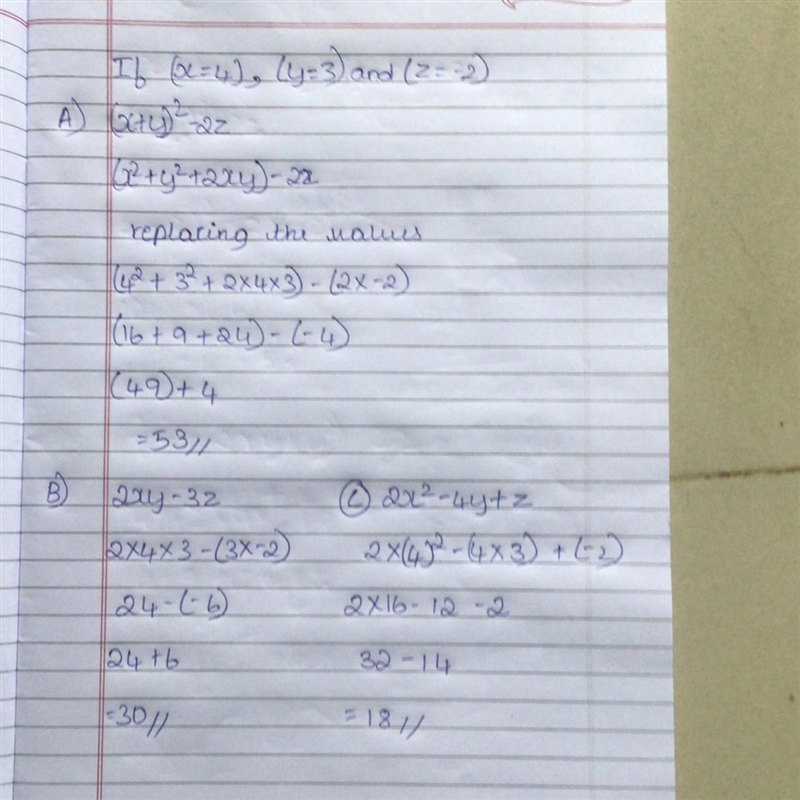 If (x=4), (y=3) and (z=-2)
A) (x+y)²-2z
(x²+y²+2xy)-2z
replacing the values
(4²+3²+2×4×3)-(2×-2)
(16+9+24)-(-4)
(49)+4
=53//
B) 2xy-3z
2×4×3-(3×-2)
24-(-6)
24+6
=30//
C) 2x²-4y+z
2×(4)²-(4×3)+(-2)
2×16-12-2
32-14
=18//